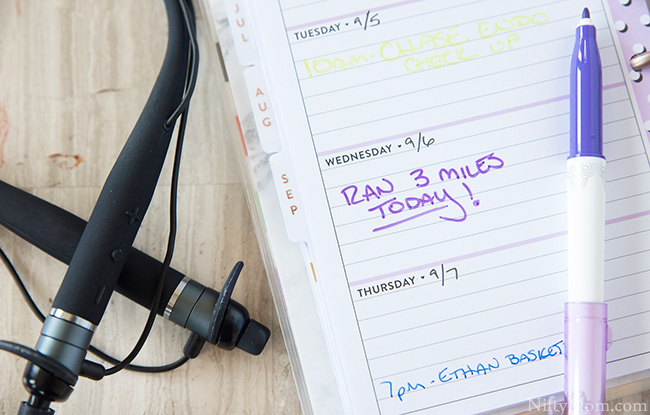 JUL
AUG
SEP
TUESDAY • 9/5
10am - CHASE ENDO
CHECK UP
WEDNESDAY • 9/6
RAN 3 MILES
TODAY!
THURSDAY • 9/7
7pm - ETHAN BASKET
NiftyMom.com